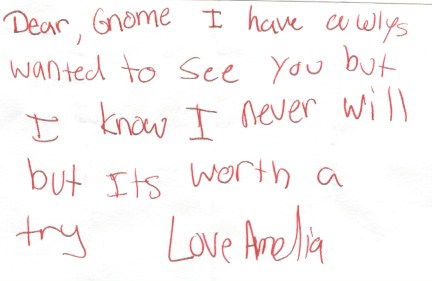 Dear, Gnome I have awlys
wanted to see you but
I know I never will
but Its worth a
try Love Amelia